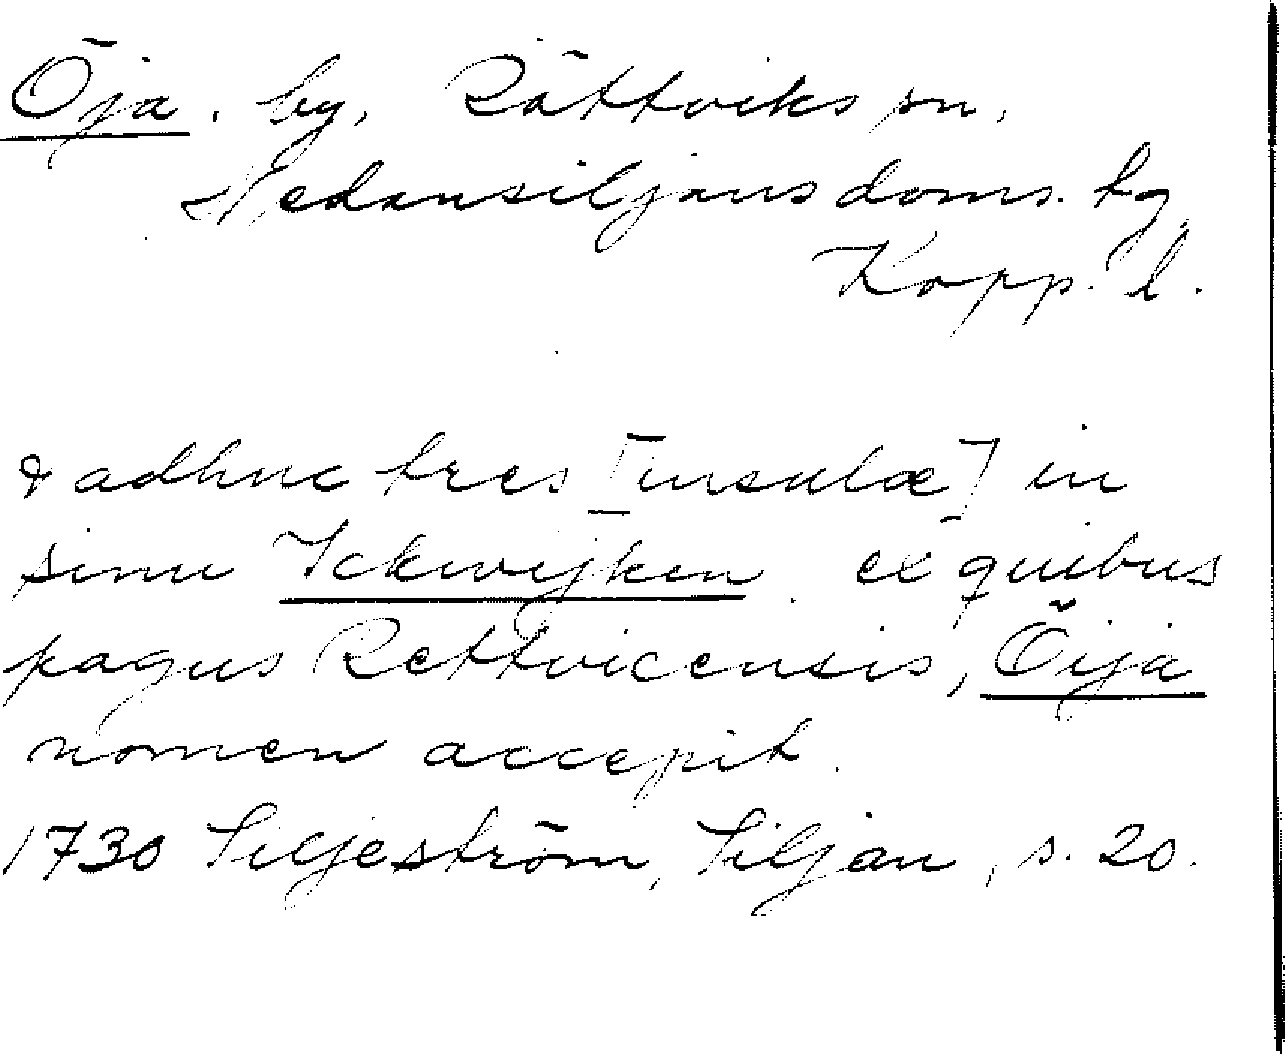 Öja. by, Rättviks sn,
Nedansiljans doms. hg
Kopp. l.
& adhuc tres [insulæ] in
sinu Ickwijken ex quibus
pagus Rettvicensis, Öija
nomen accepit.
1730 Siljeström, Siljan, s. 20.